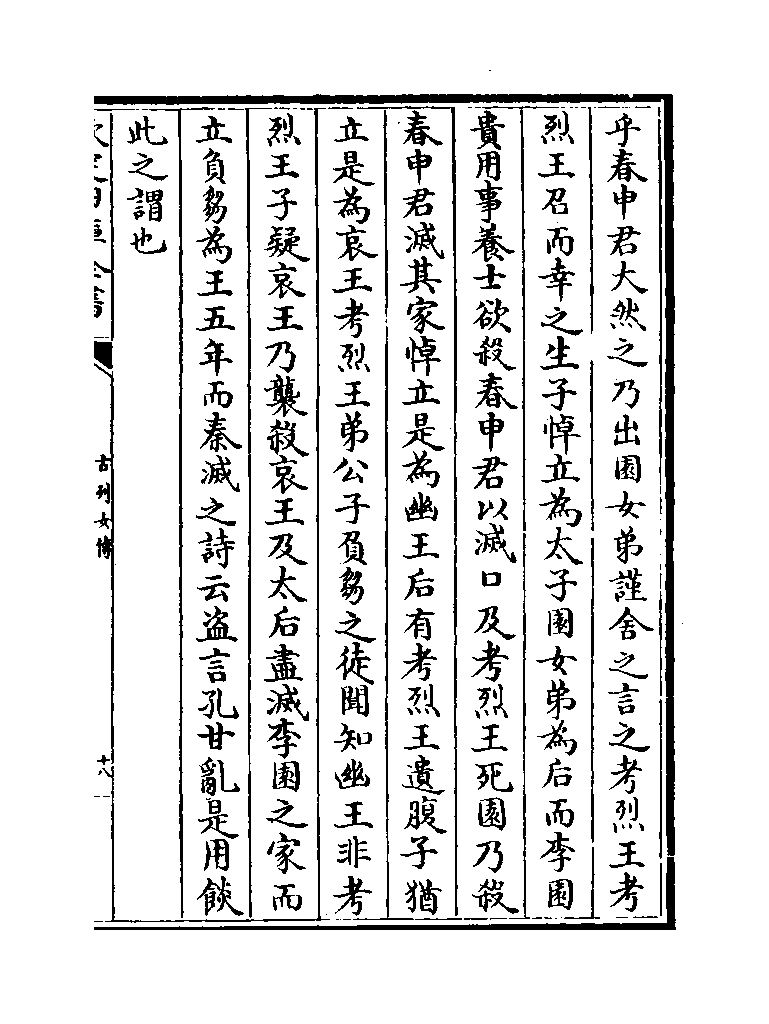 乎春申君大然之乃出園女弟謹舍之言之考烈王考
烈王召而幸之生子悼立為太子園女弟為后而李園
貴用事養士欲殺春申君以滅口及考烈王死園乃殺
春申君滅其家悼立是為幽王后有考烈王遺腹子猶
立是為哀王考烈王弟公子負芻之徒聞知幽王非考
烈王子疑哀王乃襲殺哀王及太后盡滅李園之家而
立負芻為王五年而秦滅之詩云盗言孔甘亂是用餤
此之謂也
古列女傳
十八